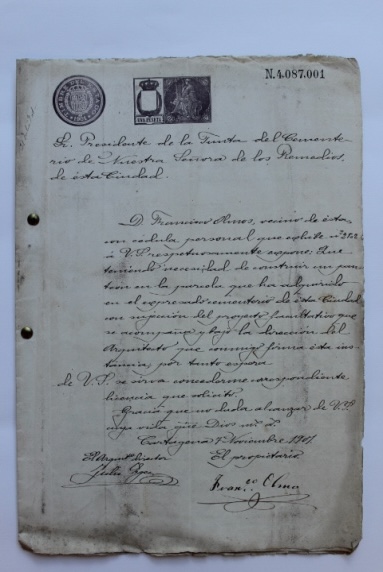 N.4.087.001
Sr. Presidente de la Junta del Cemente-
rio de Nuestra Señora de los Remedios,
de ésta Ciudad.
D. Francisco Olmos, vecino de ésta
con cédula personal que exhibe nº
á V.S. respetuosamente expone: Que
teniendo necesidad de construir un pan-
teón en la parcela que ha adquirido
en el expresado cementerio de ésta Ciudad
con sujeción del proyecto facultativo que
se acompaña y bajo la dirección del
Arquitecto que conmigo firma ésta ins-
tancia, por tanto espera
de V.S. se sirva concederme correspondiente
licencia que solicito.
Gracia que no duda alcanzar de V.S.
cuya vida que Dios
Cartagena Noviembre 1901
El Arquitº Director
El propietario
Franco. Olmos